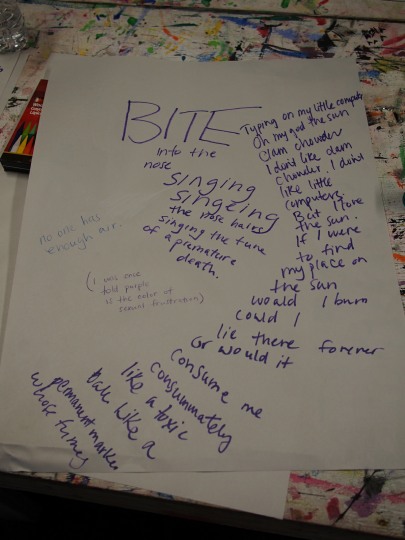 BITE
into the
nose
singing
singeing
the nose hairs
singing the tune
of a premature
death.
no one has
enough air.
(I was once
told purple
is the color of
sexual frustration)
Typing on my little computer
Oh my god the sun
Clam chowder
I don't like clam
chowder. I don't
like little
computers.
But I love
the sun.
If I were
to find
my place on
the sun
would I burn
could I
lie there forever
or would it
consume me
consummately
like a toxic
like a
permanent marker
whose fumes